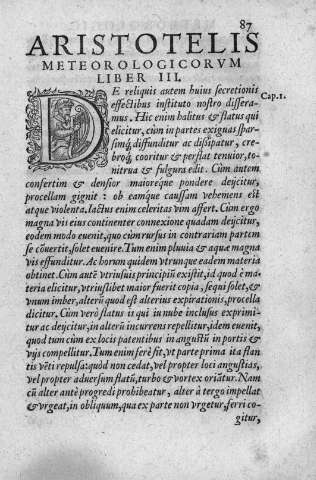 87
ARISTOTELIS
METEOROLOGICORVM
LIBER III.
DE reliquis autem huius secretionis
Cap.1.
effectibus instituto nostro dissera-
mus. Hic enim halitus & flatus qui
elicitur, cùm in partes exiguas spar-
simq́; diffunditur ac dissipatur, cre-
broq́; cooritur & perflat tenuior, to-
nitrua & fulgura edit. Cùm autem
confertim & densior maioreque pondere deijcitur,
procellam gignit: ob eamque caussam vehemens est
atque violenta, iactus enim celeritas vim affert. Cùm ergo
magna vis eius continenter connexione quadam deijcitur,
eodem modo euenit, quo cùm rursus in contrariam partem
se cõuertit, solet euenire. Tum enim pluuia & aquæ magna
vis effunditur. Ac horum quidem vtrunque eadem materia
obtinet. Cùm autẽ vtriusuis principiũ existit, id quod è ma-
teria elicitur, vtriuslibet maior fuerit copia, sequi solet, &
vnum imber, alterũ quod est alterius expirationis, procella
dicitur. Cùm verò flatus is qui in nube inclusus exprimi-
tur ac deijcitur, in alterũ incurrens repellitur, idem euenit,
quod tum cùm ex locis patentibus in angustũ in portis &
vijs compellitur. Tum enim ferè fit, vt parte prima ita flan-
tis vẽti repulsa: quòd non cedat, vel propter loci angustias,
vel propter aduersum flatũ, turbo & vortex oriãtur. Nam
cũ alter antè progredi prohibeatur, alter à tergo impellat
& vrgeat, in obliquum, qua ex parte non vrgetur, ferri co-
gitur,